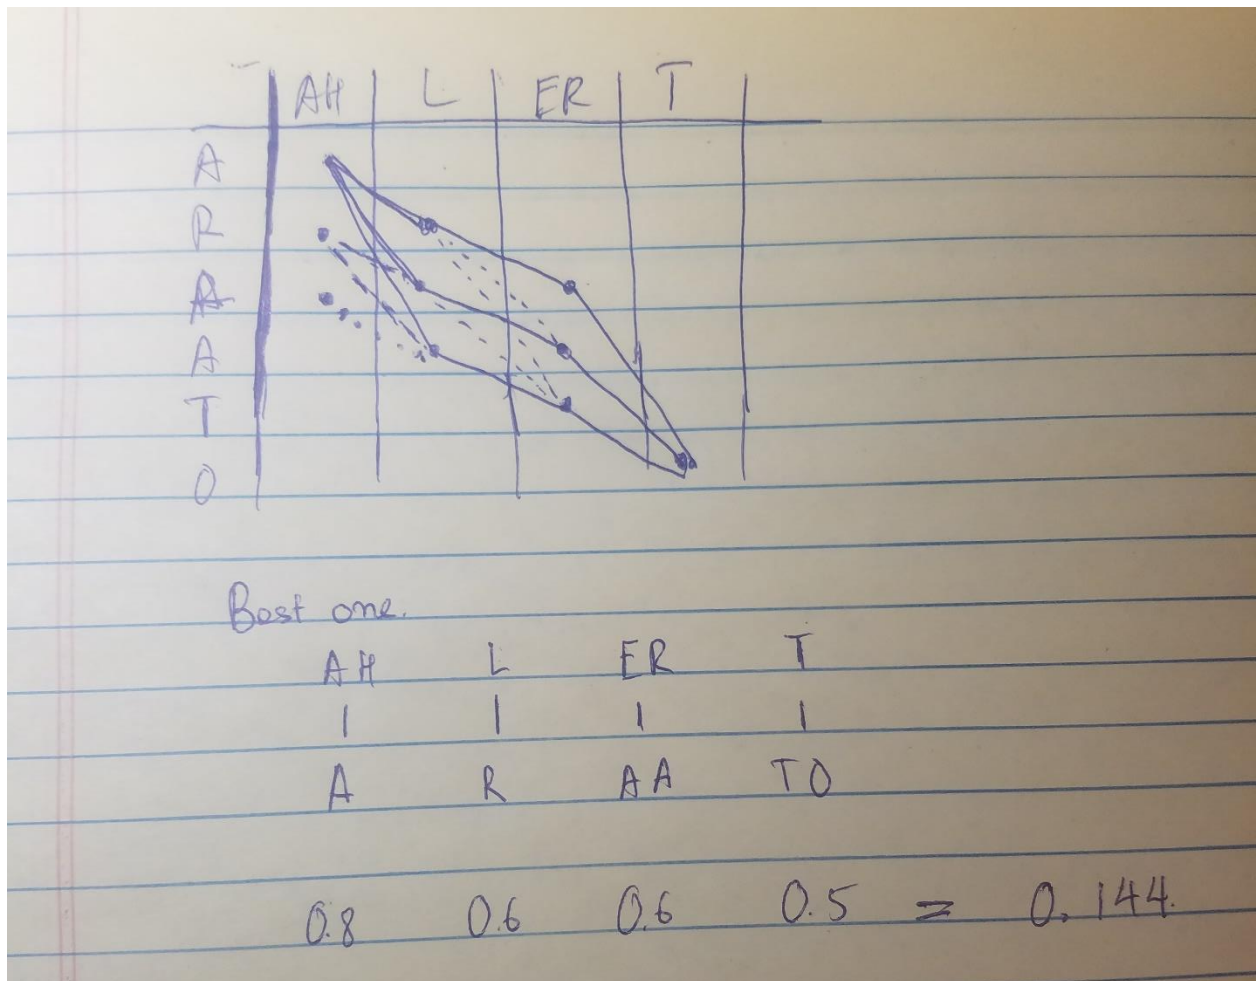 AH L ER T
A
R
A
A
T
O
Best one.
AH L ER T
| | | |
A R AA TO
0.8 0.6 0.6 0.5 = 0.144.